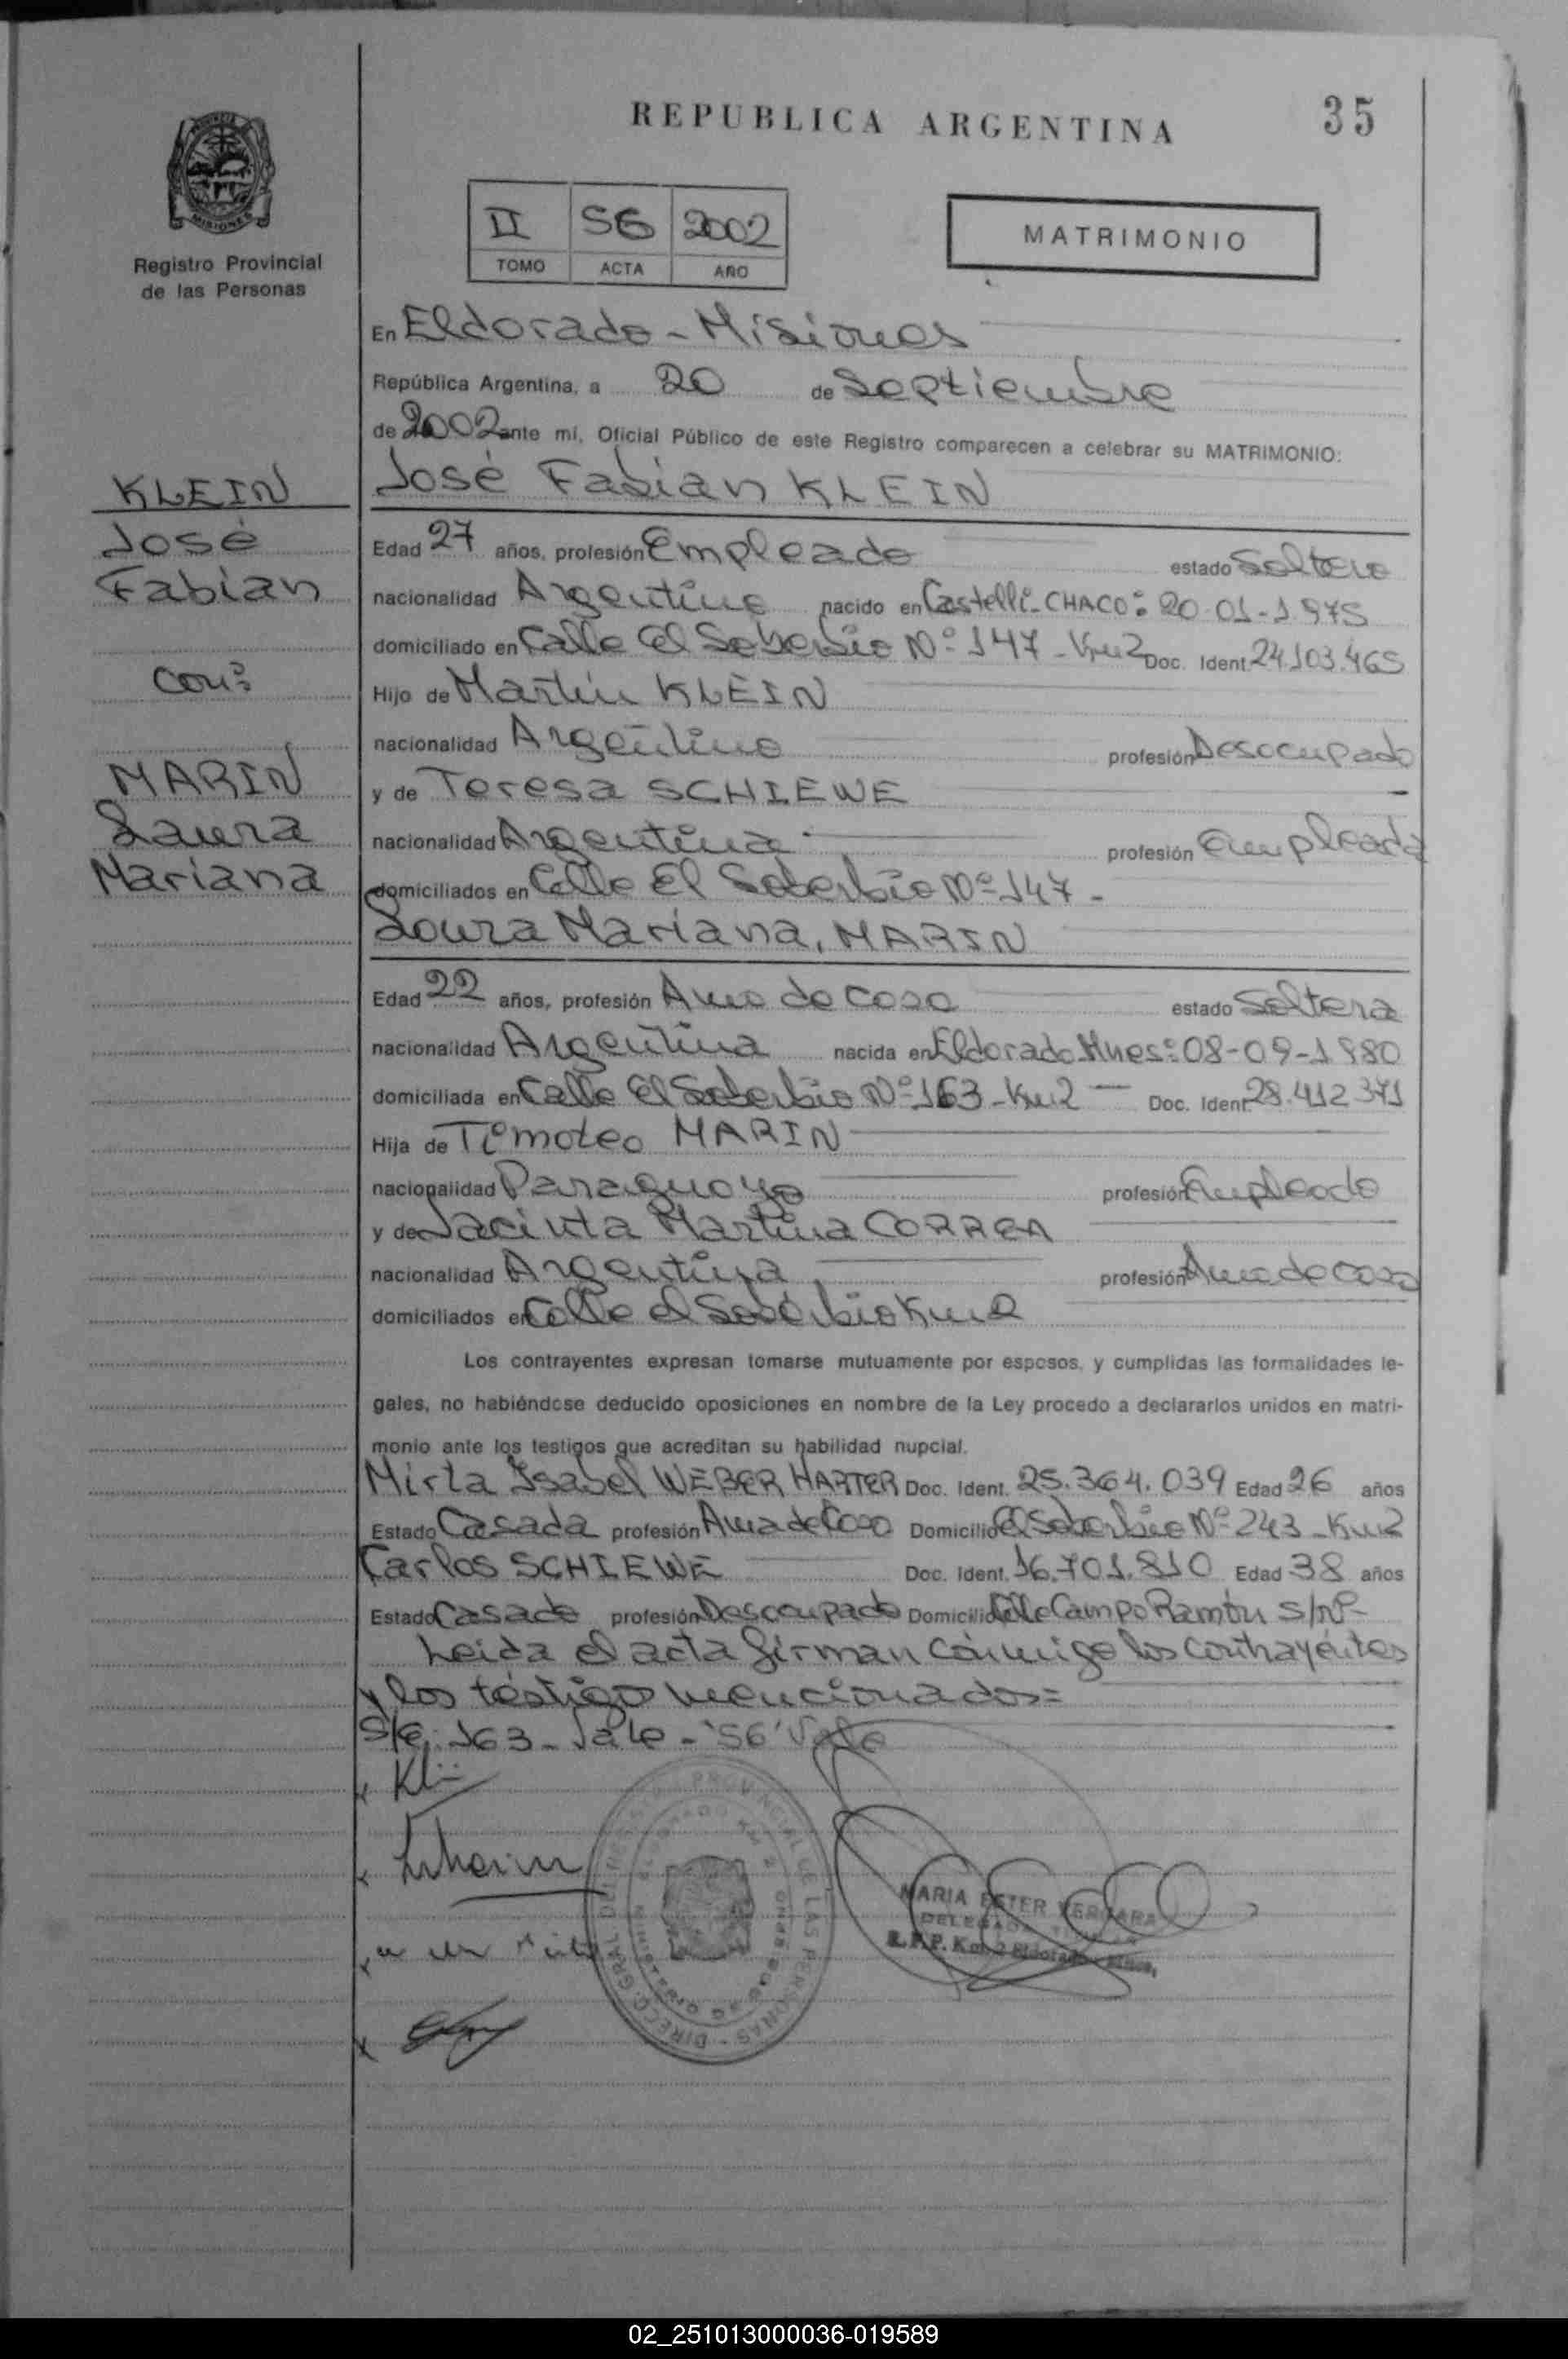 REPUBLICA ARGENTINA
35
Registro Provincial
de las Personas
II 56 2002
TOMO ACTA AÑO
MATRIMONIO
En Eldorado - Misiones
República Argentina, a 20 de Septiembre
de 2002 ante mí, Oficial Público de este Registro comparecen a celebrar su MATRIMONIO:
José Fabian KLEIN
KLEIN
José
Fabian
Con:
MARIN
Laura
Mariana
Edad 27 años, profesión Empleado estado Soltero
nacionalidad Argentino nacido en Castelli - CHACO: 20-01-1975
domiciliado en Calle El Soberbio Nº 147 - Km2 Doc. Ident. 24.103.465
Hijo de Martin KLEIN
nacionalidad Argentino profesión Desocupado
y de Teresa SCHIEWE
nacionalidad Argentina profesión Empleada
domiciliados en Calle El Soberbio Nº 147 -
Laura Mariana, MARIN
Edad 22 años, profesión Ama de Casa estado Soltera
nacionalidad Argentina nacida en Eldorado Mnes: 08-09-1980
domiciliada en Calle El Soberbio Nº 163 - Km2 Doc. Ident. 28.412.371
Hija de Timoteo MARIN
nacionalidad Paraguayo profesión Empleado
y de Jacinta Martina CORREA
nacionalidad Argentina profesión Ama de Casa
domiciliados en Calle El Soberbio Km2
Los contrayentes expresan tomarse mutuamente por esposos, y cumplidas las formalidades le-
gales, no habiéndose deducido oposiciones en nombre de la Ley procedo a declararlos unidos en matri-
monio ante los testigos que acreditan su habilidad nupcial.
Mirta Isabel WEBER HARTER Doc. Ident. 25.364.039 Edad 26 años
Estado Casada profesión Ama de Casa Domicilio El Soberbio Nº 243 - Km2
Carlos SCHIEWE Doc. Ident. 16.701.810 Edad 38 años
Estado Casado profesión Desocupado Domicilio Calle Campo Ramón S/nº
Leida el acta firman conmigo los contrayentes
y los testigo mencionados=
S/e: 163 - Vale - "56" Vale
MARIA ESTER VERGARA
DELEGADA TITULAR
R.P.P. Km. 2 Eldorado - Mnes.
02_251013000036-019589